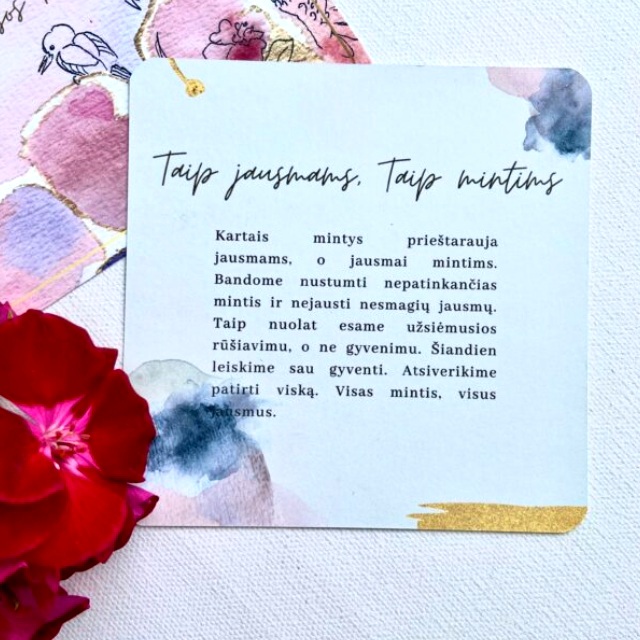 Taip jausmams, Taip mintims
Kartais mintys prieštarauja
jausmams, o jausmai mintims.
Bandome nustumti nepatinkančias
mintis ir nejausti nesmagių jausmų.
Taip nuolat esame užsiėmusios
rūšiavimu, o ne gyvenimu. Šiandien
leiskime sau gyventi. Atsiverikime
patirti viską. Visas mintis, visus
jausmus.